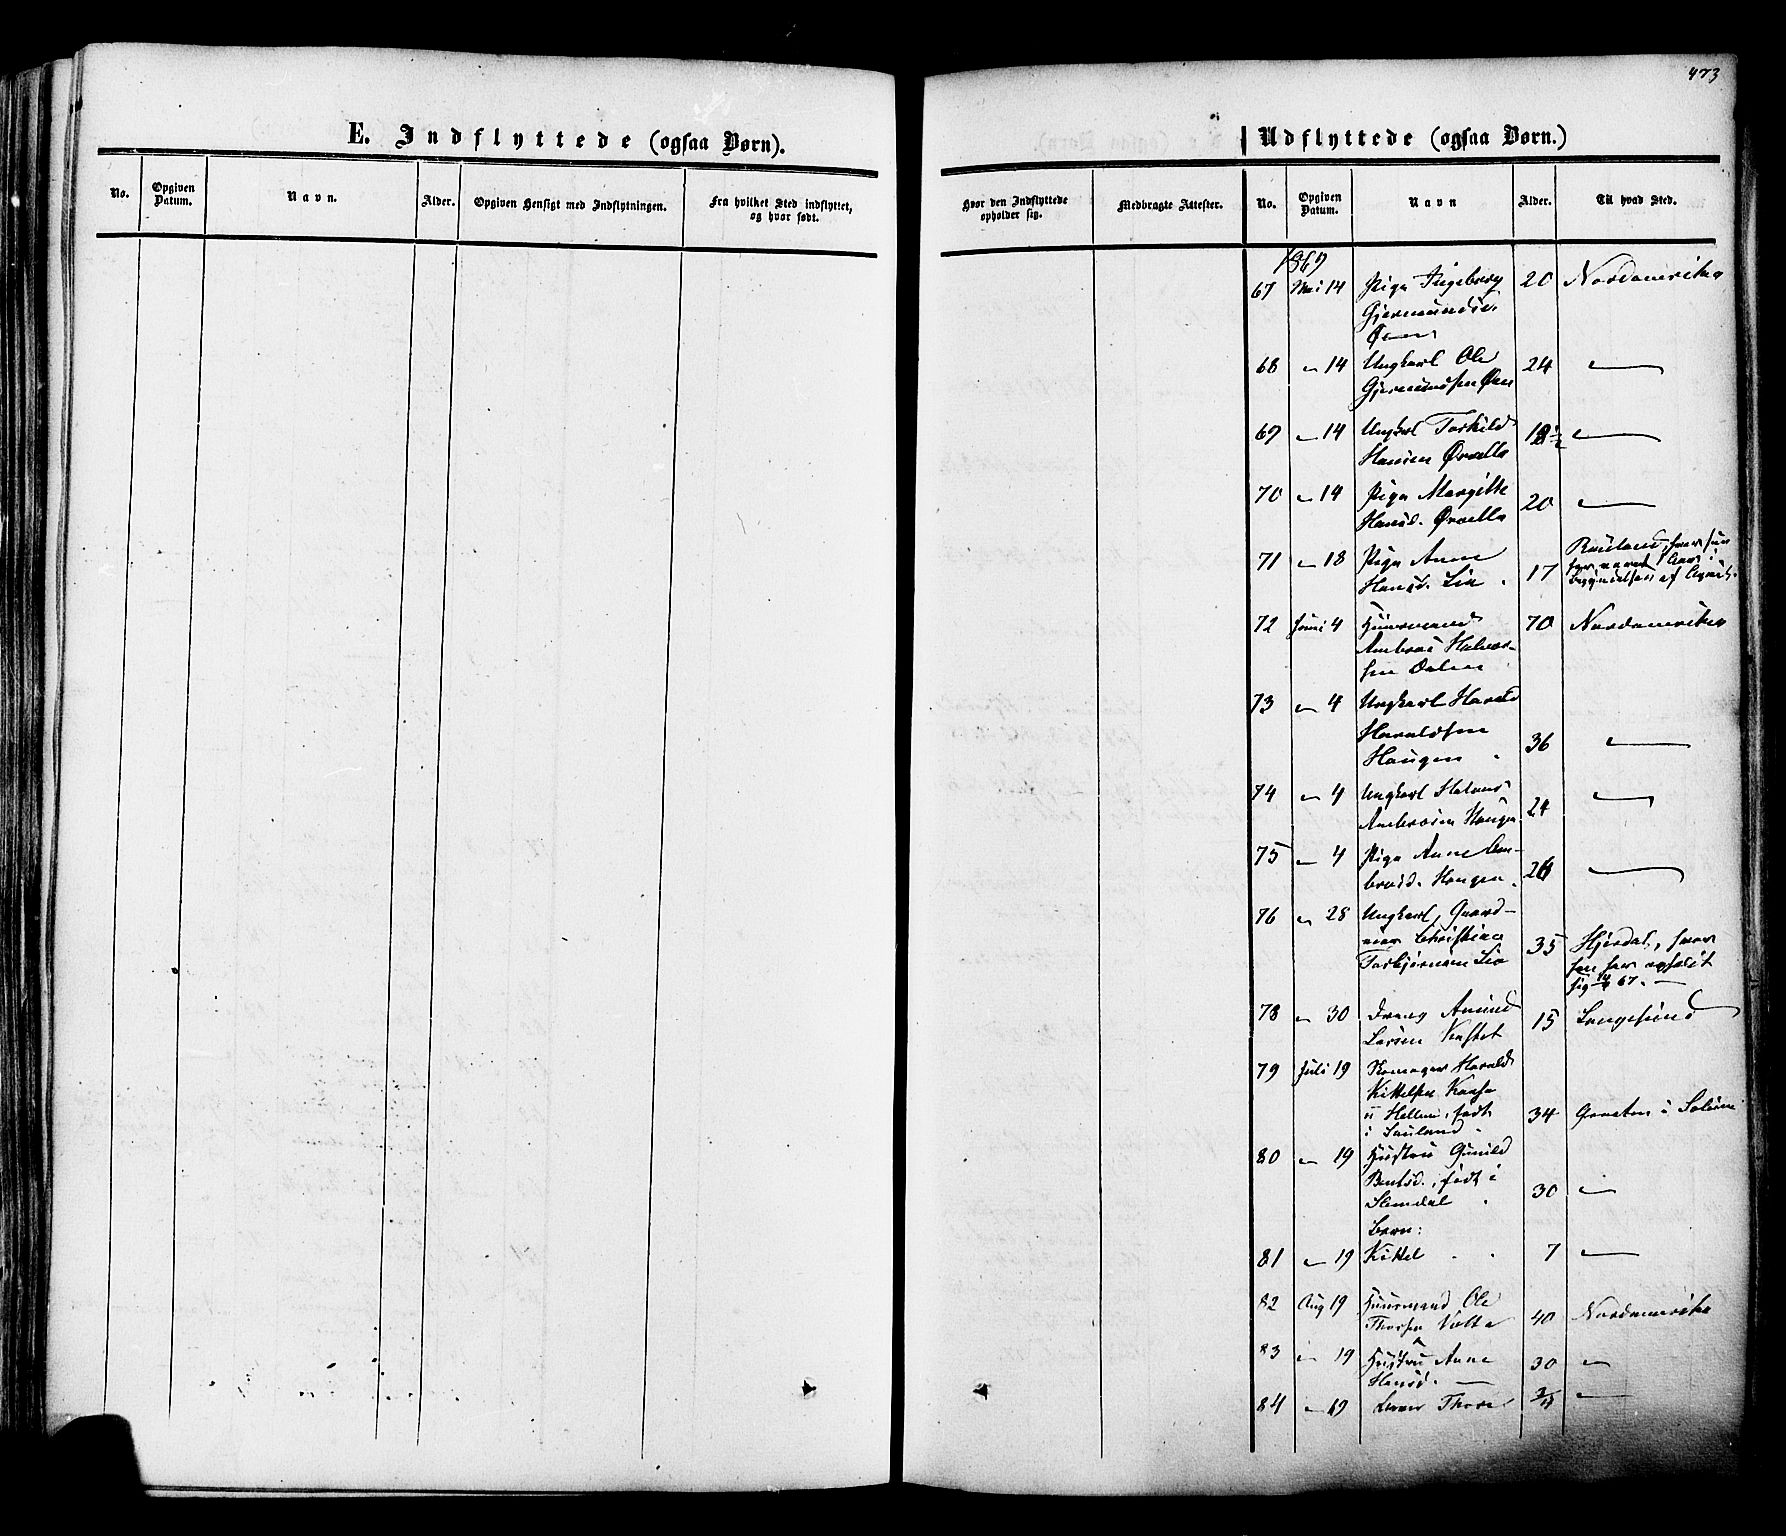 473
E. Indflyttede (ogsaa Børn).
Udflyttede (ogsaa Børn.)
No. Opgiven Datum. Navn. Alder. Opgiven Hensigt med Indflytningen. Fra hvilket Sted indflyttet, og hvor født.
Hvor den Indflyttede opholder sig. Medbragte Attester. No. Opgiven Datum. Navn Alder. Til hvad Sted.
1869
67 Mai 14 Pige Ingeborg 20 Nordamerika
Gjermundsd.
68 " 14 Ungkarl Ole 24 "
Gjermundsen Øen
69 " 14 Ungkarl Torkild 18½ "
Hansen Ørvella
70 " 14 Pige Margitte 20 "
Hansd. Ørvella
71 " 18 Pige Anne 17 Rauland, hvor hun
Hansd. Lia
har været
begyndelsen af
72 Juni 4 Huusmand 70 Nordamerika
Ambros Halvor-
sen Dalen
73 " 4 Ungkarl Harald
Haraldsen 36 "
Haugen
74 " 4 Ungkarl Halvor 24 "
Ambrosen Haugen
75 " 4 Pige Anne Am- "
brosd. Haugen
76 " 28 Ungkarl, Gaard-
Christian 35 Hjerdal, hvor
Torbjørnsen Lia han har opholdt
sig 67.
78 " 30 Dreng Amund 15 Langesund
Larsen
79 Juli 19 Skomager Harald
Kittelsen
Hellem, født 34 i Solum
i Sauland
80 " 19 Hustru Gunild
Bentsd., født i 30 "
Slemdal
Børn:
81 " 19 Kittel 7 "
82 Aug 19 Huusmand Ole 40 Nordamerika
Thorsen
83 " 19 Hustru Anne 30 "
Hansd. "
84 " 19 Thore "